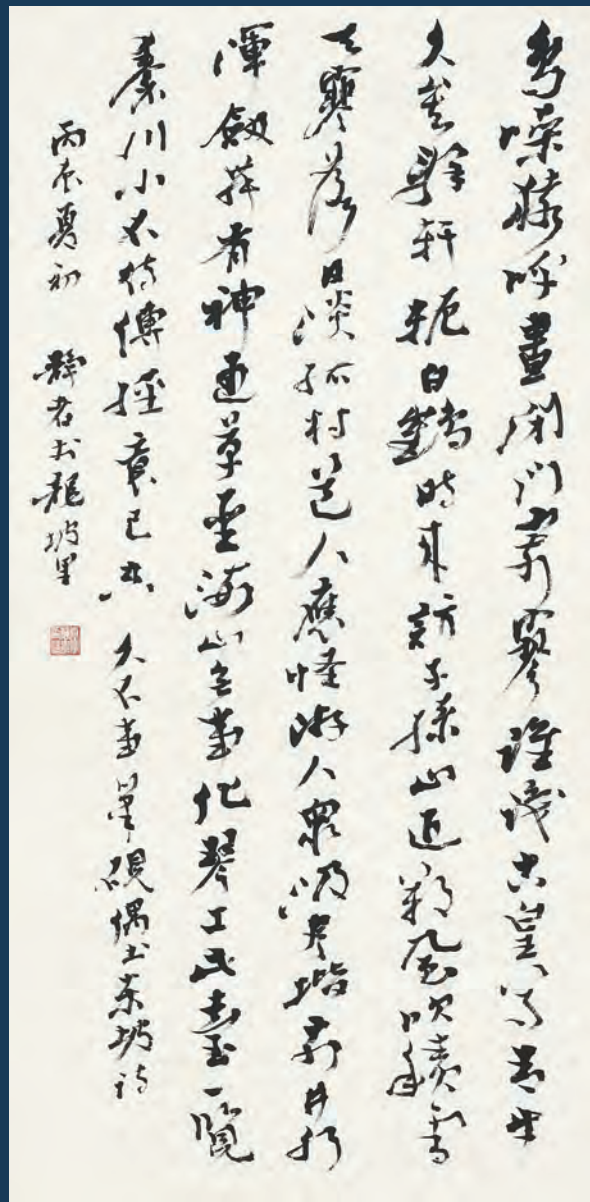 鳥噪猿呼晝閉門寂寥誰識古皇尊青牛
久已辭轅軛白鶴時來訪子孫山近朔風吹積雪
天寒落日淡孤村道人應怪游人眾汲盡階前井水
渾劍舞有神通草聖海山無事化琴工此臺一覽
秦川小不待傳經意已空 久不事筆硯偶書東坡詩
丙辰夏初 靜者書龍坡里